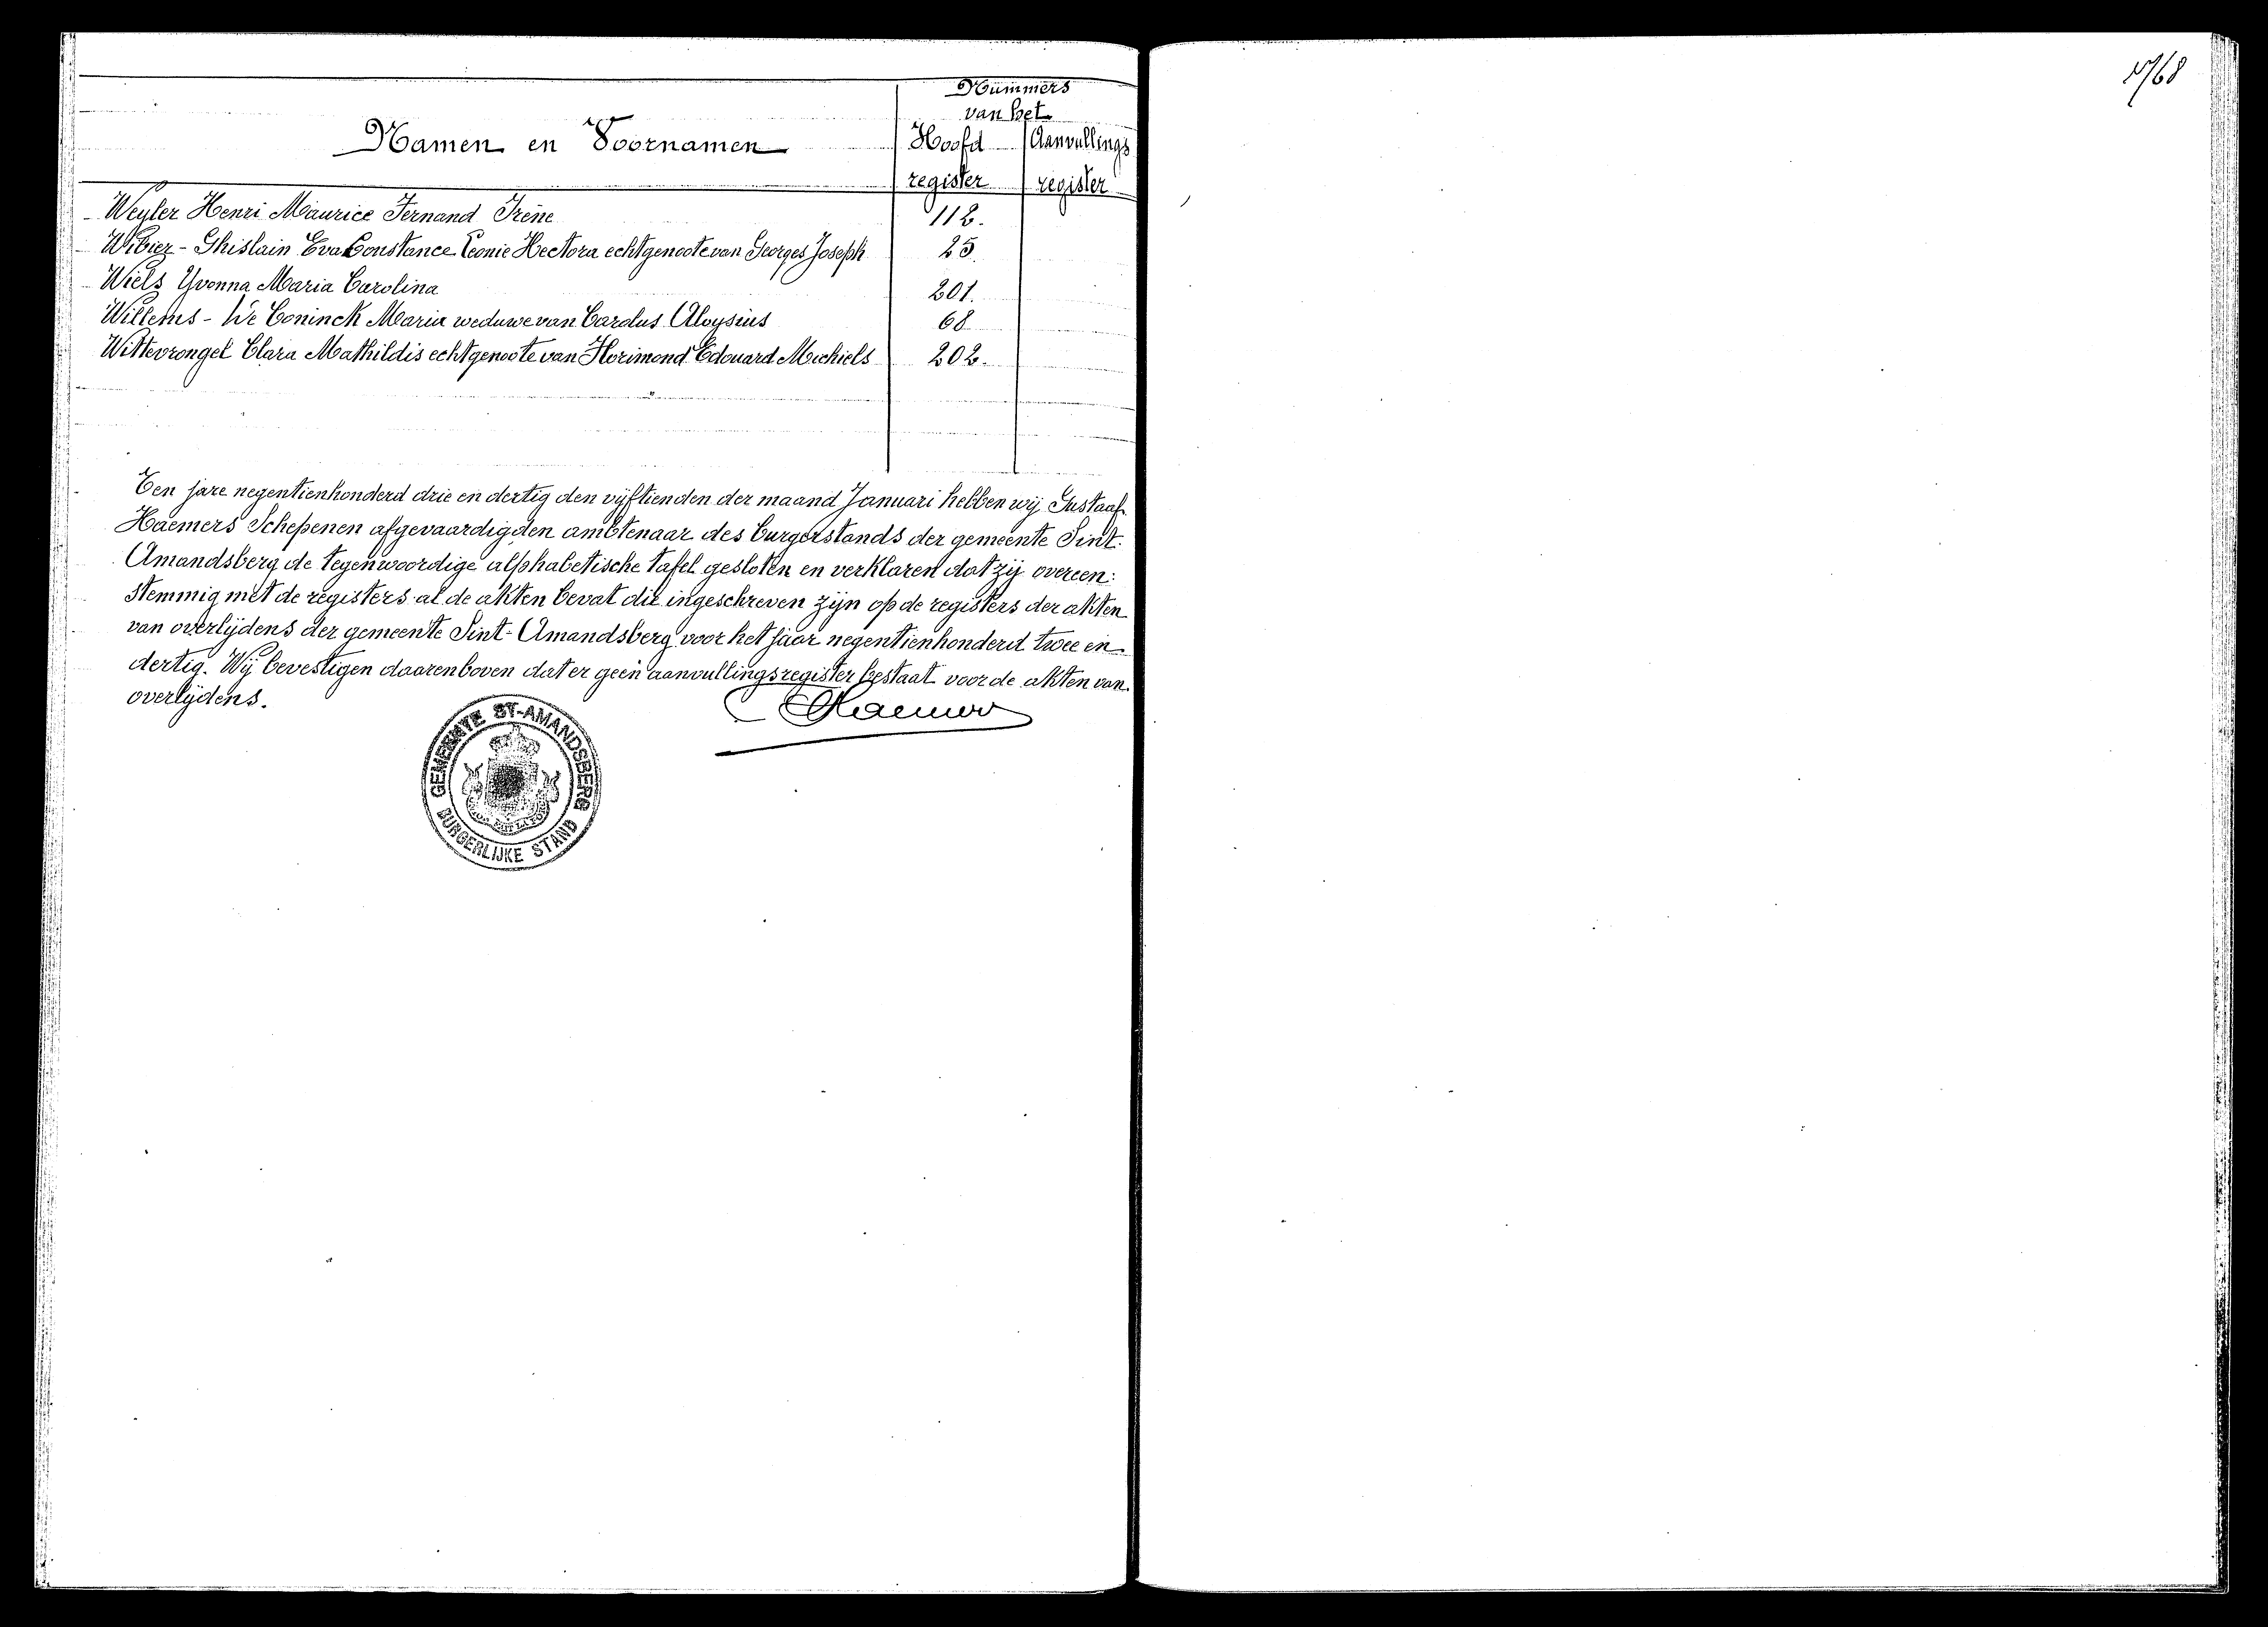 Nummers
van het
Namen en Voornamen
Hoofd register
Aanvullings register
Weyler Henri Maurice Fernand Irène 112.
Wibier - Ghislain Eva Constance Leonie Hectora echtgenoote van Georges Joseph 25.
Wiels Yvonna Maria Carolina 201.
Willems - De Coninck Maria weduwe van Carolus Aloysius 68
Wittevrongel Clara Mathildis echtgenoote van Florimond Edouard Michiels 202.
Ten jare negentienhonderd drie en dertig den vijftienden der maand Januari hebben wij Gustaaf
Haemers Schepenen afgevaardigden ambtenaar des burgerstands der gemeente Sint-
Amandsberg de tegenwoordige alphabetische tafel gesloten en verklaren dat zij overeen:
stemmig met de registers al de akten bevat die ingeschreven zijn op de registers der akten
van overlijdens der gemeente Sint-Amandsberg voor het jaar negentienhonderd twee en
dertig. Wij bevestigen daarenboven dat er geen aanvullingsregister bestaat voor de akten van
overlijdens.
Haemers
GEMEENTE ST-AMANDSBERG
BURGERLIJKE STAND